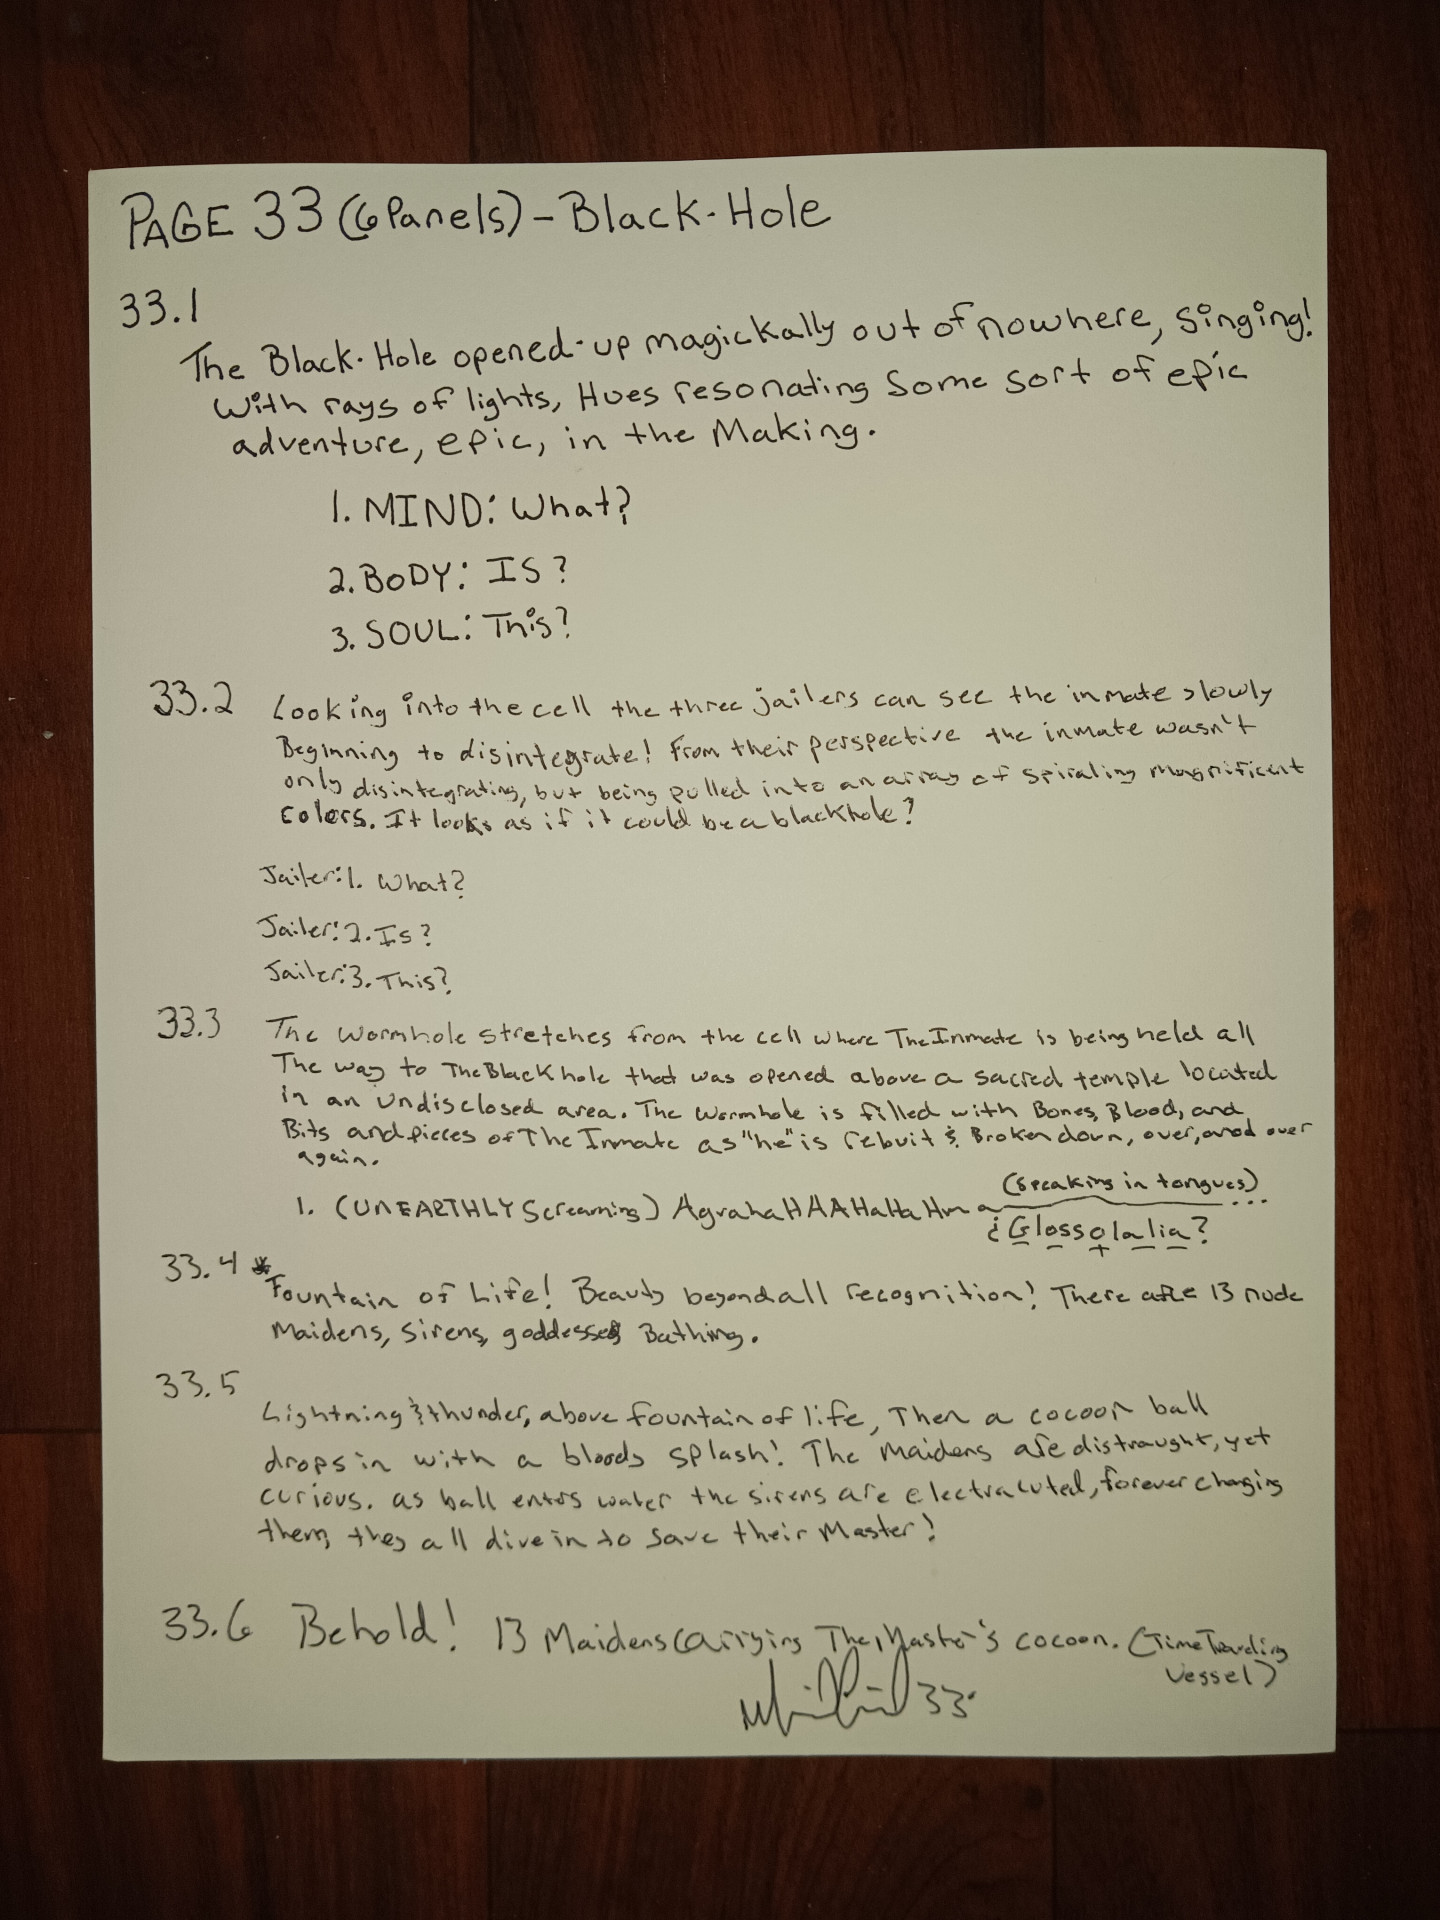 PAGE 33 (6 Panels) - Black-Hole
33.1
The Black-Hole opened-up magickally out of nowhere, singing!
With rays of lights, Hues resonating Some sort of epic
adventure, epic, in the Making.
1. MIND: What?
2. BODY: IS?
3. SOUL: This?
33.2 Looking into the cell the three jailers can see the inmate slowly
Beginning to disintegrate! From their perspective the inmate wasn't
only disintegrating, but being pulled into an array of spiraling magnificent
colors. It looks as if it could be a blackhole?
Jailer:1. What?
Jailer:2. Is?
Jailer:3. This?
33.3 The wormhole stretches from the cell where The Inmate is being held all
The way to The Black hole that was opened above a sacred temple located
in an undisclosed area. The wormhole is filled with Bones, Blood, and
Bits and pieces of The Inmate as "he" is rebuit & Broken down, over, and over
again.
(Speaking in tongues)
1. (UNEARTHLY Screaming) AgrahaHAAHaHaHma...
¿Glossolalia?
33.4 * Fountain of Life! Beauty beyond all recognition! There are 13 nude
Maidens, Sirens, goddesses Bathing.
33.5
Lightning & thunder, above fountain of life, Then a cocoon ball
drops in with a bloody splash! The Maidens are distraught, yet
curious. as ball enters water the sirens are electracuted, forever changing
them, they all dive in to save their Master!
33.6 Behold! 13 Maidens carrying The Master's cocoon. (Time Traveling
Vessel)
33